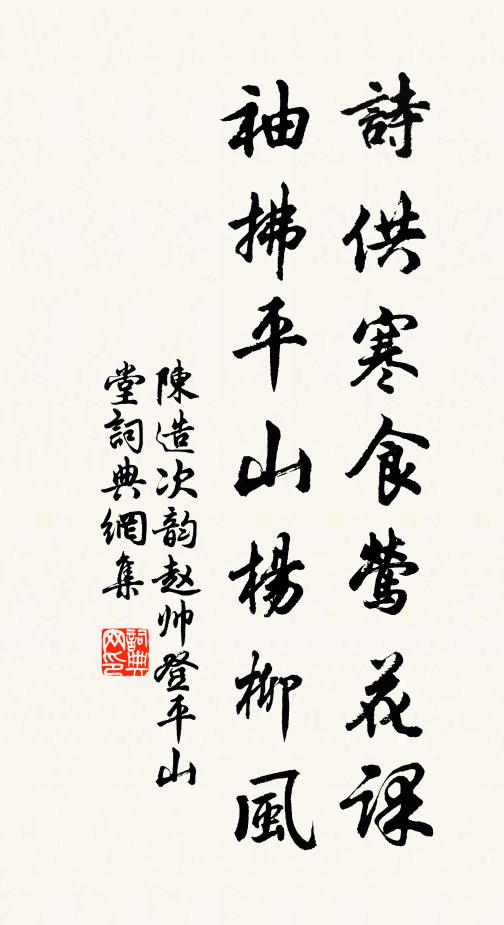 詩供寒食鶯花課
袖拂平山楊柳風
陳造次韵赵帅登平山
堂詞典網集
詞典网印